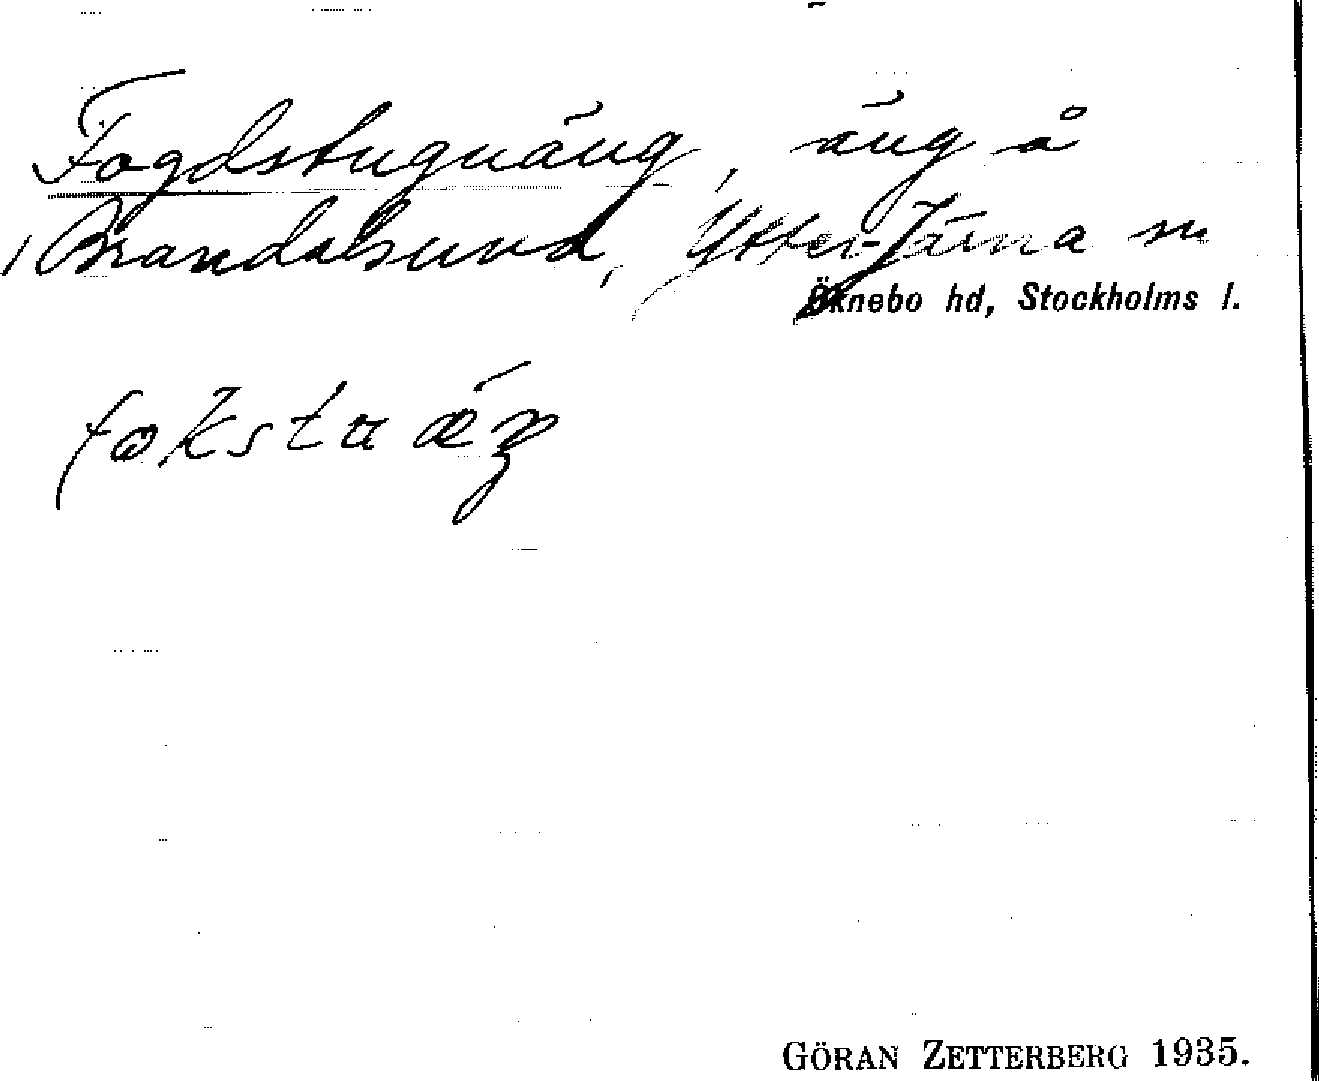 Fogdstuguäng, äng å
Brandalsund, Ytter-Järna sn
Öknebo hd, Stockholms l.
GÖRAN ZETTERBERG 1935.